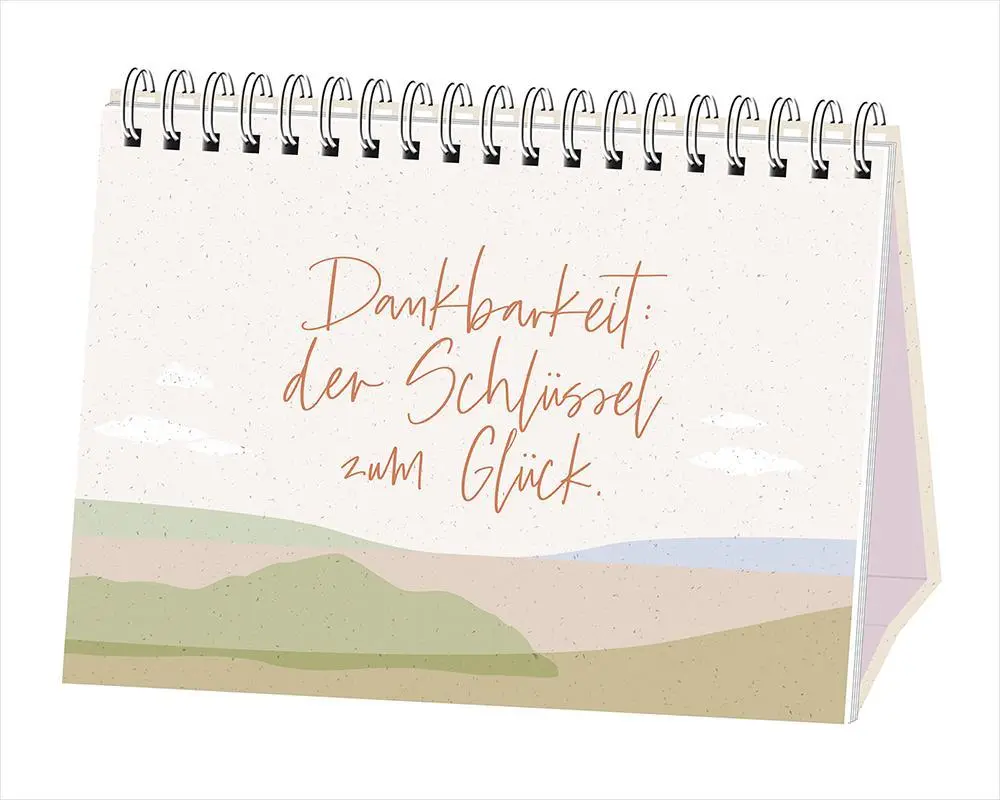 Dankbarkeit:
der Schlüssel
zum Glück.